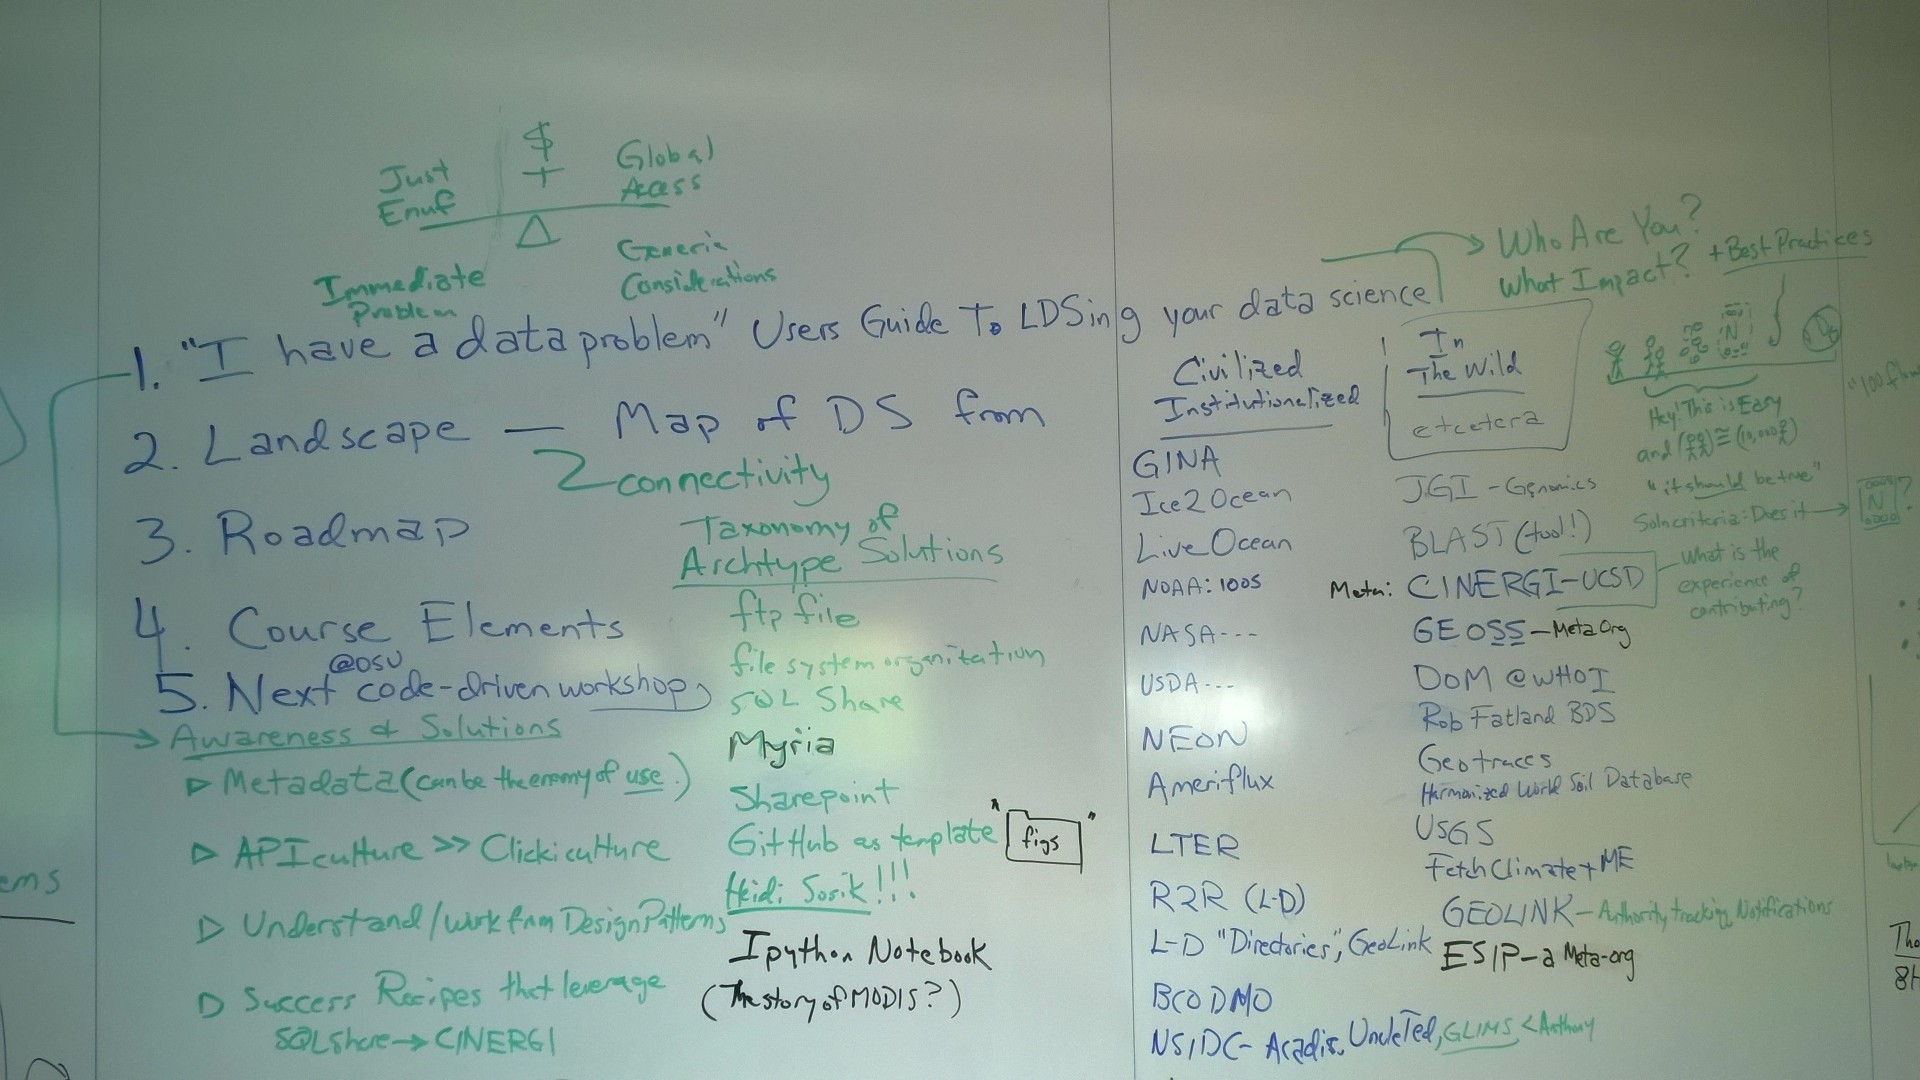 $
+
Just
Enuf
Global
Access
Immediate
Problem
Generic
Considerations
1. "I have a data problem" Users Guide To LDSing your data science
2. Landscape — Map of DS from
connectivity
3. Roadmap
4. Course Elements
@OSU
5. Next code-driven workshop
Awareness & Solutions
Metadata (can be the enemy of use.)
API culture >> Clickiculture
Understand/work from Design Patterns
Success Recipes that leverage
SQLShare → CINERGI
Taxonomy of
Archtype Solutions
ftp file
file system organization
SQL Share
Myria
Sharepoint
GitHub as template
"figs"
Heidi Sosik!!!
Ipython Notebook
(The story of MODIS?)
Who Are You?
What Impact? + Best Practices
Civilized
Institutionalized
GINA
Ice2Ocean
Live Ocean
NOAA: IOOS
NASA ---
USDA ---
NEON
Ameriflux
LTER
R2R (L-D)
L-D "Directories", GeoLink
BCODMO
NSIDC - Acadis, UncleTed, GLIMS < Anthony
In
The Wild
etcetera
JGI - Genomics
BLAST (tool!)
Meta: CINERGI-UCSD
GEOSS - Meta Org
DOM @ WHOI
Rob Fatland BDS
Geotraces
Harmonized World Soil Database
USGS
FetchClimate + ME
GEOLINK - Authority tracking, Notifications
ESIP - a Meta-org
N
Hey! This is Easy
and
"it should be true"
Soln criteria: Does it → N ?
What is the
experience of
contributing?
ems